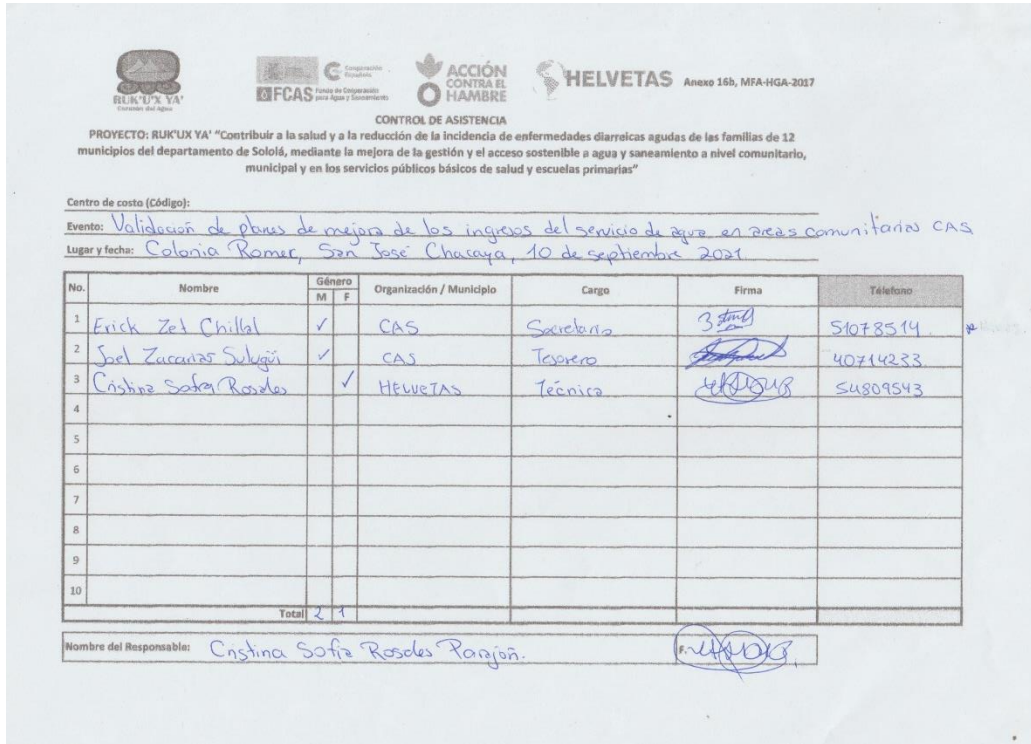 RUK'U'X YA'
Corazón del Agua
Cooperación Española
FCAS Fondo de Cooperación para Agua y Saneamiento
ACCIÓN CONTRA EL HAMBRE
HELVETAS Anexo 16b, MFA-HGA-2017
CONTROL DE ASISTENCIA
PROYECTO: RUK'UX YA' "Contribuir a la salud y a la reducción de la incidencia de enfermedades diarreicas agudas de las familias de 12
municipios del departamento de Sololá, mediante la mejora de la gestión y el acceso sostenible a agua y saneamiento a nivel comunitario,
municipal y en los servicios públicos básicos de salud y escuelas primarias"
Centro de costo (Código):
Evento: Validación de planes de mejora de los ingresos del servicio de agua en areas comunitarias CAS
Lugar y fecha: Colonia Romer, San José Chacaya, 10 de septiembre 2021
No. Nombre Género M F Organización / Municipio Cargo Firma Télefono
1 Erick Zet Chillal ✓ CAS Secretario 51078514
2 Joel Zacarias Sulugüi ✓ CAS Tesorero 40714233
3 Cristina Sofia Rosales ✓ HELVETAS Técnica 54809543
4
5
6
7
8
9
10
Total 2 1
Nombre del Responsable: Cristina Sofia Rosales Parajón. F.